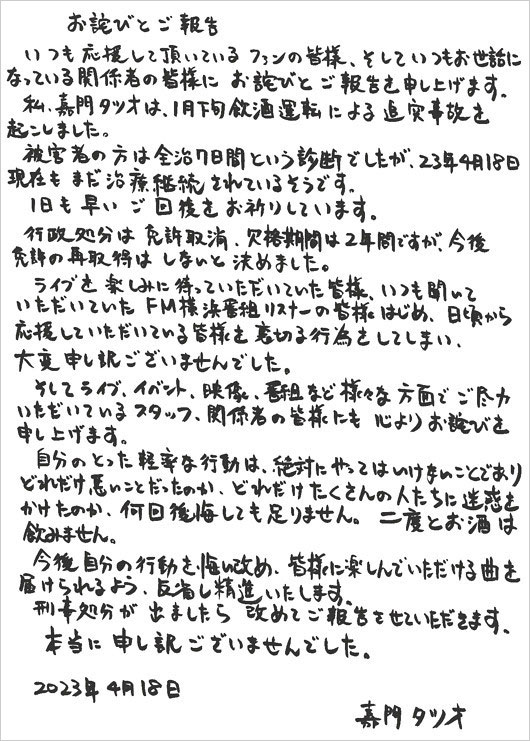 お詫びとご報告
いつも応援して頂いているファンの皆様、そしていつもお世話に
なっている関係者の皆様に お詫びとご報告を申し上げます。
私、嘉門タツオは、1月下旬飲酒運転による追突事故を
起こしました。
被害者の方は全治7日間という診断でしたが、23年4月18日
現在もまだ治療継続されているそうです。
1日も早いご回復をお祈りしています。
行政処分は免許取消、欠格期間は2年間ですが、今後
免許の再取得はしないと決めました。
ライブを楽しみに待っていただいていた皆様、いつも聞いて
いただいていたFM横浜番組リスナーの皆様はじめ、日頃から
応援していただいている皆様を裏切る行為をしてしまい、
大変申し訳ございませんでした。
そしてライブ、イベント、映像、番組など様々な方面でご尽力
いただいているスタッフ、関係者の皆様にも 心よりお詫びを
申し上げます。
自分のとった軽率な行動は、絶対にやってはいけないことであり
どれだけ悪いことだったのか、どれだけたくさんの人たちに迷惑を
かけたのか、何回後悔しても足りません。二度とお酒は
飲みません。
今後自分の行動を悔い改め、皆様に楽しんでいただける曲を
届けられるよう、反省し精進いたします。
刑事処分が出ましたら 改めてご報告させていただきます。
本当に申し訳ございませんでした。
2023年4月18日
嘉門タツオ